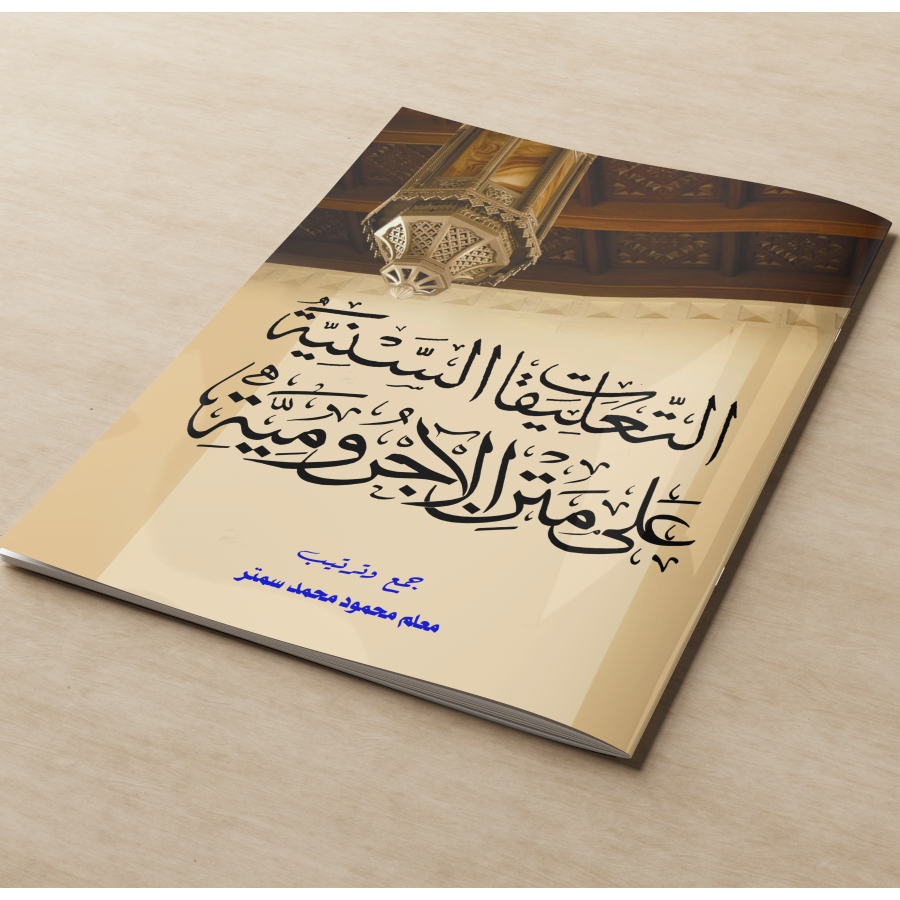 التَّعْلِيقَاتُ السَّنِيَّةُ
عَلَى مَتْنِ الْآجُرُّومِيَّةِ
جمع وترتيب
معلم محمود محمد سمتر